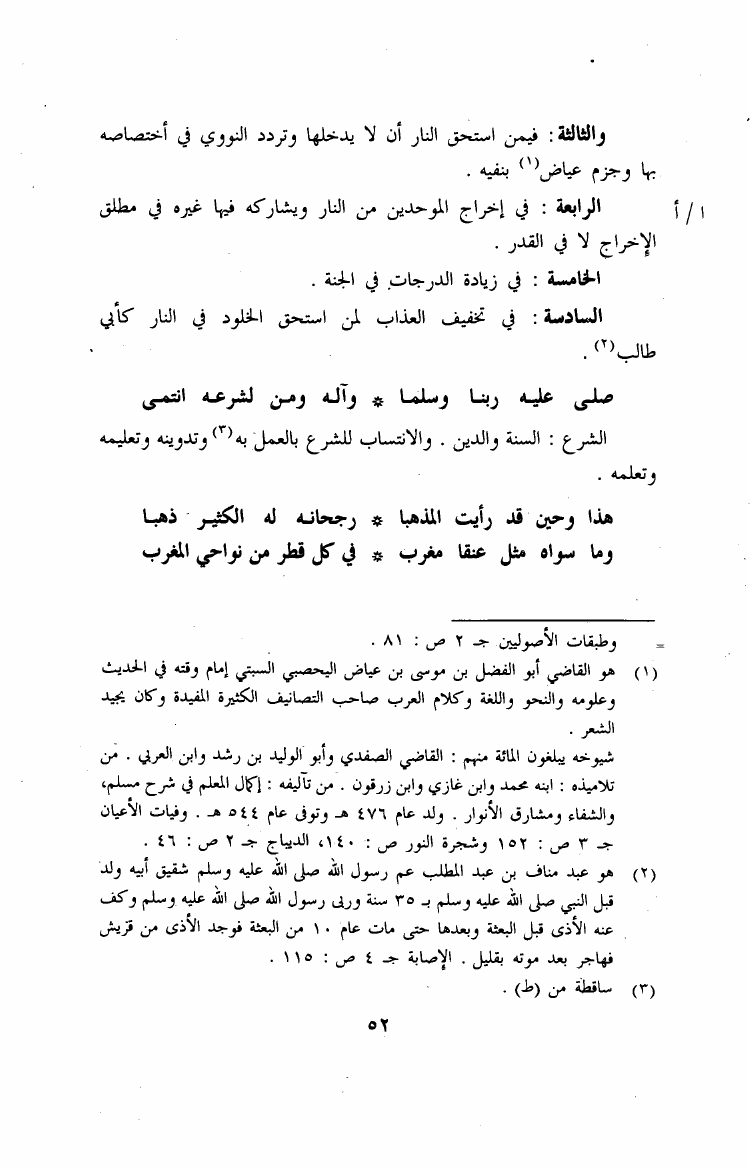 والثالثة : فيمن استحق النار أن لا يدخلها وتردد النووي في أختصاصه
بها وجزم عياض(١) بنفيه .
١ / أ
الرابعة : في إخراج الموحدين من النار ويشاركه فيها غيره في مطلق
الإخراج لا في القدر .
الخامسة : في زيادة الدرجات في الجنة .
السادسة : في تخفيف العذاب لمن استحق الخلود في النار كأبي
طالب(٢) .
صلى عليه ربنا وسلما * وآله ومن لشرعه انتمى
الشرع : السنة والدين . والانتساب للشرع بالعمل به(٣) وتدوينه وتعليمه
وتعلمه .
هذا وحين قد رأيت المذهبا * رجحانه له الكثير ذهبا
وما سواه مثل عنقا مغرب * في كل قطر من نواحي المغرب
= وطبقات الأصوليين جـ ٢ ص : ٨١ .
(١) هو القاضي أبو الفضل بن موسى بن عياض اليحصبي السبتي إمام وقته في الحديث
وعلومه والنحو واللغة وكلام العرب صاحب التصانيف الكثيرة المفيدة وكان يجيد
الشعر .
شيوخه يبلغون المائة منهم : القاضي الصفدي وأبو الوليد بن رشد وابن العربي . من
تلاميذه : ابنه محمد وابن غازي وابن زرقون . من تآليفه : إكمال المعلم في شرح مسلم،
والشفاء ومشارق الأنوار . ولد عام ٤٧٦ هـ وتوفى عام ٥٤٤ هـ . وفيات الأعيان
جـ ٣ ص : ١٥٢ وشجرة النور ص : ١٤٠، الديباج جـ ٢ ص : ٤٦ .
(٢) هو عبد مناف بن عبد المطلب عم رسول الله صلى الله عليه وسلم شقيق أبيه ولد
قبل النبي صلى الله عليه وسلم بـ ٣٥ سنة وربى رسول الله صلى الله عليه وسلم وكف
عنه الأذى قبل البعثة وبعدها حتى مات عام ١٠ من البعثة فوجد الأذى من قريش
فهاجر بعد موته بقليل . الإصابة جـ ٤ ص : ١١٥ .
(٣) ساقطة من (ط) .
٥٢